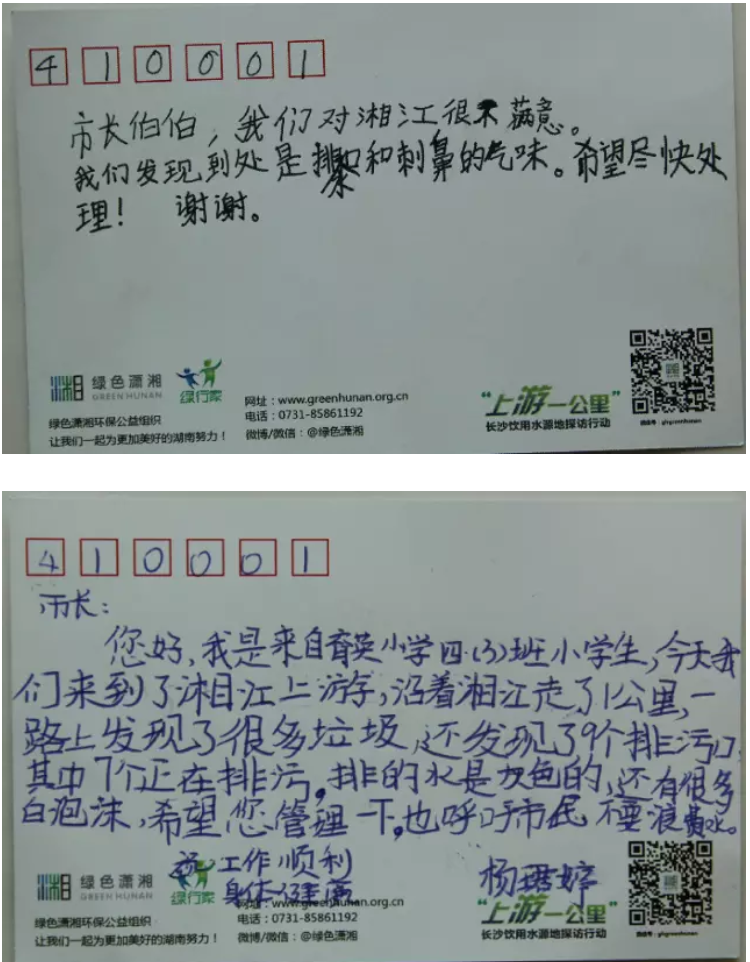 410001
市长伯伯，我们对湘江很不满意。
我们发现到处是排和刺鼻的气味。希望尽快处
理！ 谢谢。
湘 绿色潇湘
GREEN HUNAN
绿行家
绿色潇湘环保公益组织
让我们一起为更加美好的湖南努力！
网址：www.greenhunan.org.cn
电话：0731-85861192
微博/微信：@绿色潇湘
“上游一公里”
长沙饮用水源地探访行动
微信号：ghgreenhunan
410001
市长：
您好，我是来自育英小学四.(3)班小学生，今天我
们来到了湘江上游，沿着湘江走了1公里，一
路上发现了很多垃圾，还发现了9个排污口
其中7个正在排污。排的水是灰色的，还有很多
白泡沫，希望您管理一下。也呼吁市民不要浪费水。
祝工作顺利
身体健康
杨婷
湘 绿色潇湘
GREEN HUNAN
绿行家
绿色潇湘环保公益组织
让我们一起为更加美好的湖南努力！
网址：www.greenhunan.org.cn
电话：0731-85861192
微博/微信：@绿色潇湘
“上游一公里”
长沙饮用水源地探访行动
微信号：ghgreenhunan